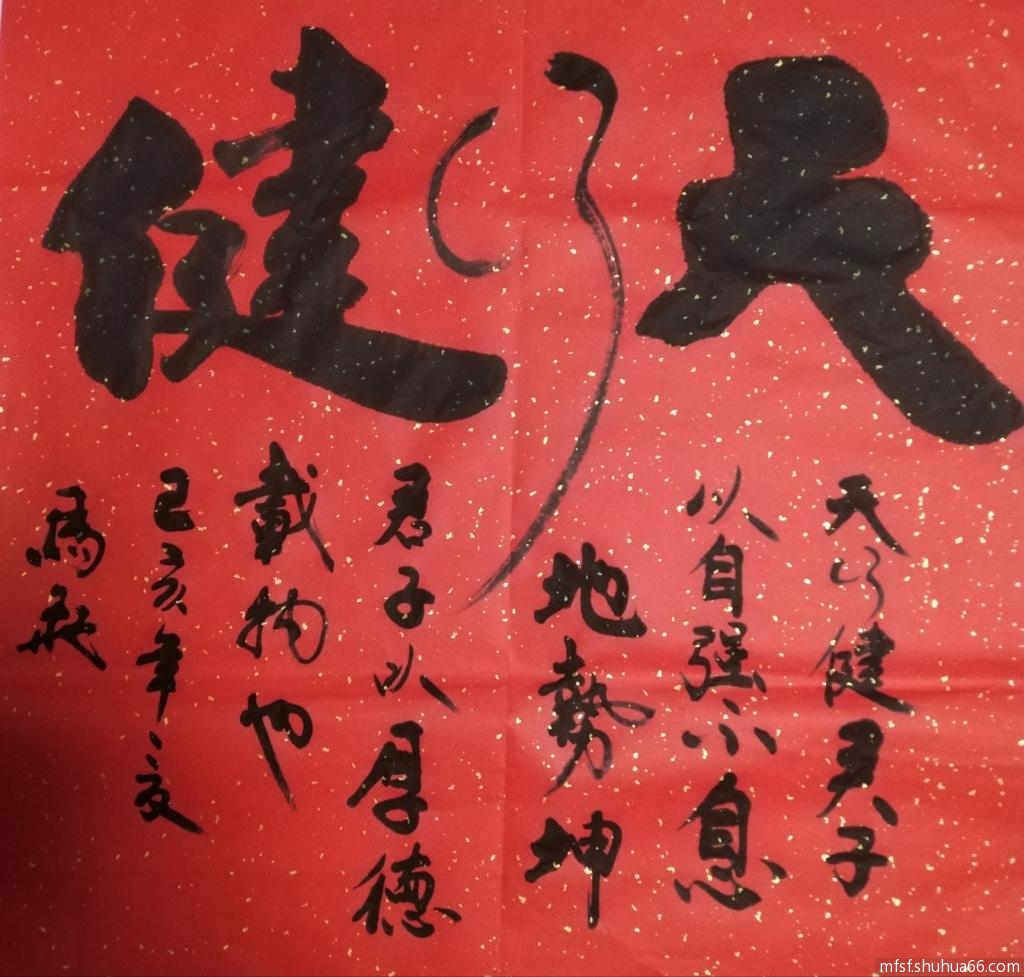 天行健
天行健君子
以自强不息
地勢坤
君子以厚德
載物也
己亥年夏
馬
mfsf.shuhua66.com